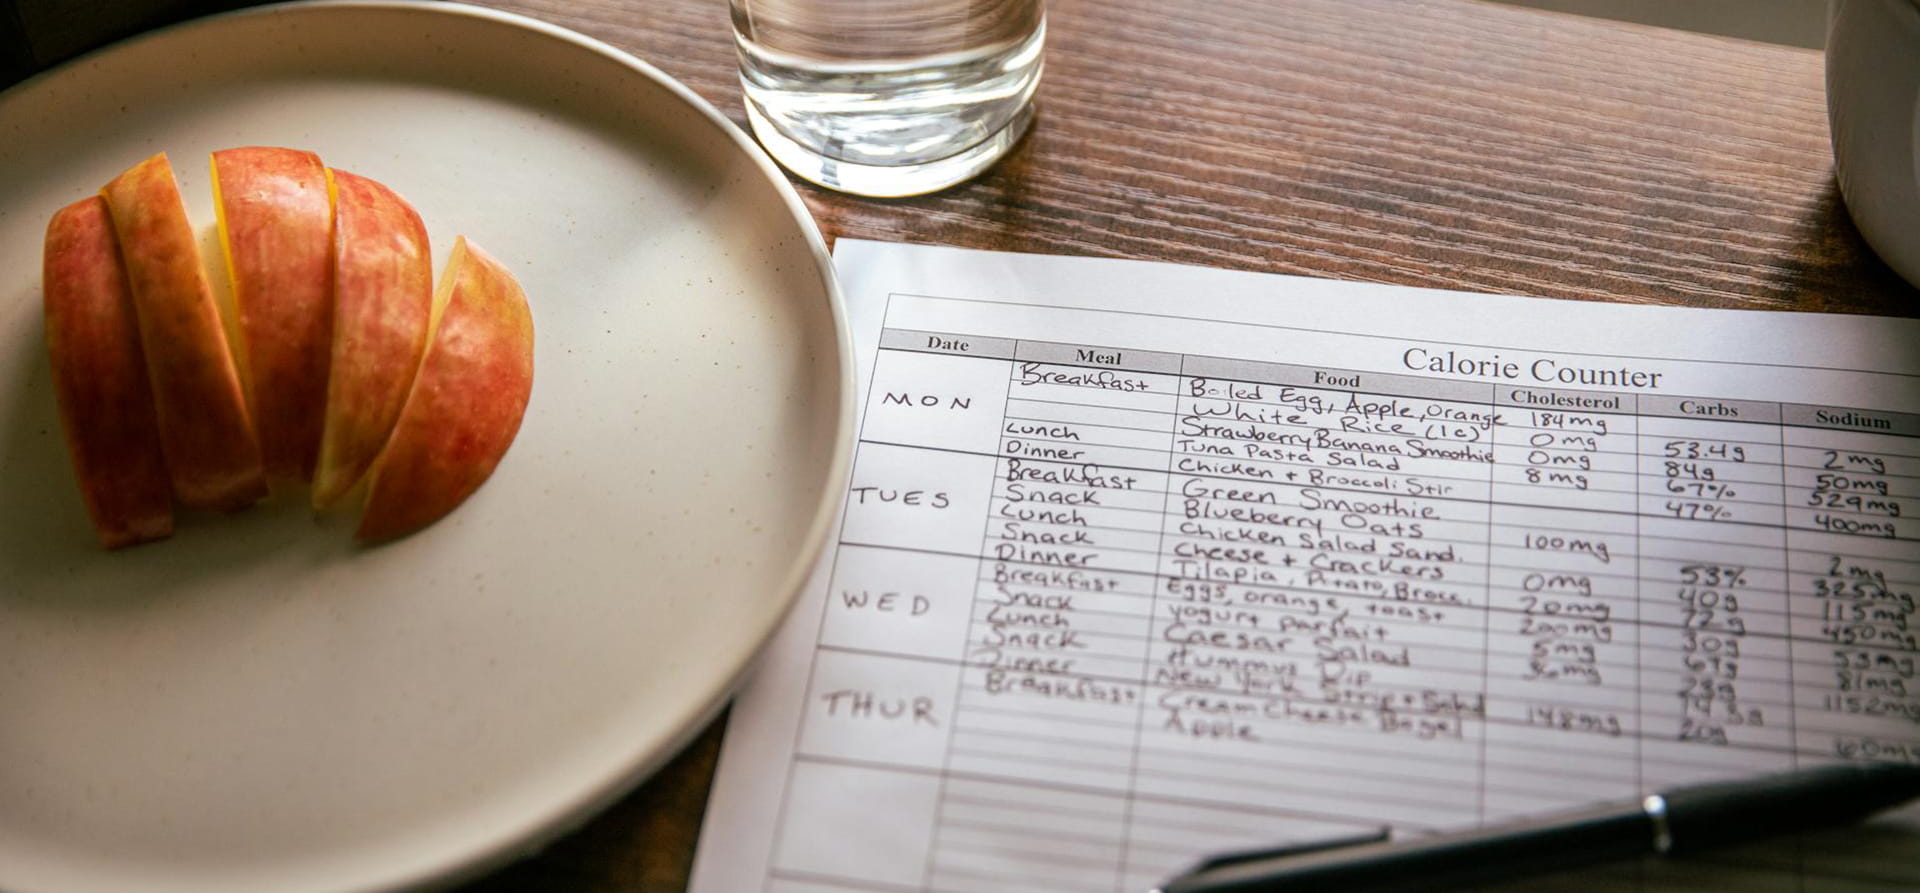 Calorie Counter
Date Meal Food Cholesterol Carbs Sodium
MON Breakfast Boiled Egg, Apple, Orange 184mg
White Rice (1c) 0mg 53.4g 2mg
Lunch Strawberry Banana Smoothie 0mg 84g 50mg
Dinner Tuna Pasta Salad 8mg 67% 529mg
TUES Breakfast Chicken + Broccoli Stir 47% 400mg
Snack Green Smoothie
Lunch Blueberry Oats 100mg
Snack Chicken Salad Sand. 53% 2mg
Dinner Cheese + Crackers 0mg 40g 325mg
WED Breakfast Tilapia, Potato, Brocc. 20mg 72g 115mg
Snack Eggs, orange, toast 200mg 450mg
Lunch Yogurt parfait 5mg 30g 53mg
Snack Caesar Salad 36mg 81mg
Dinner Hummus Dip 1152mg
THUR Breakfast New York Strip + Salad 148mg 20g
Cream Cheese Bagel 60mg
Apple